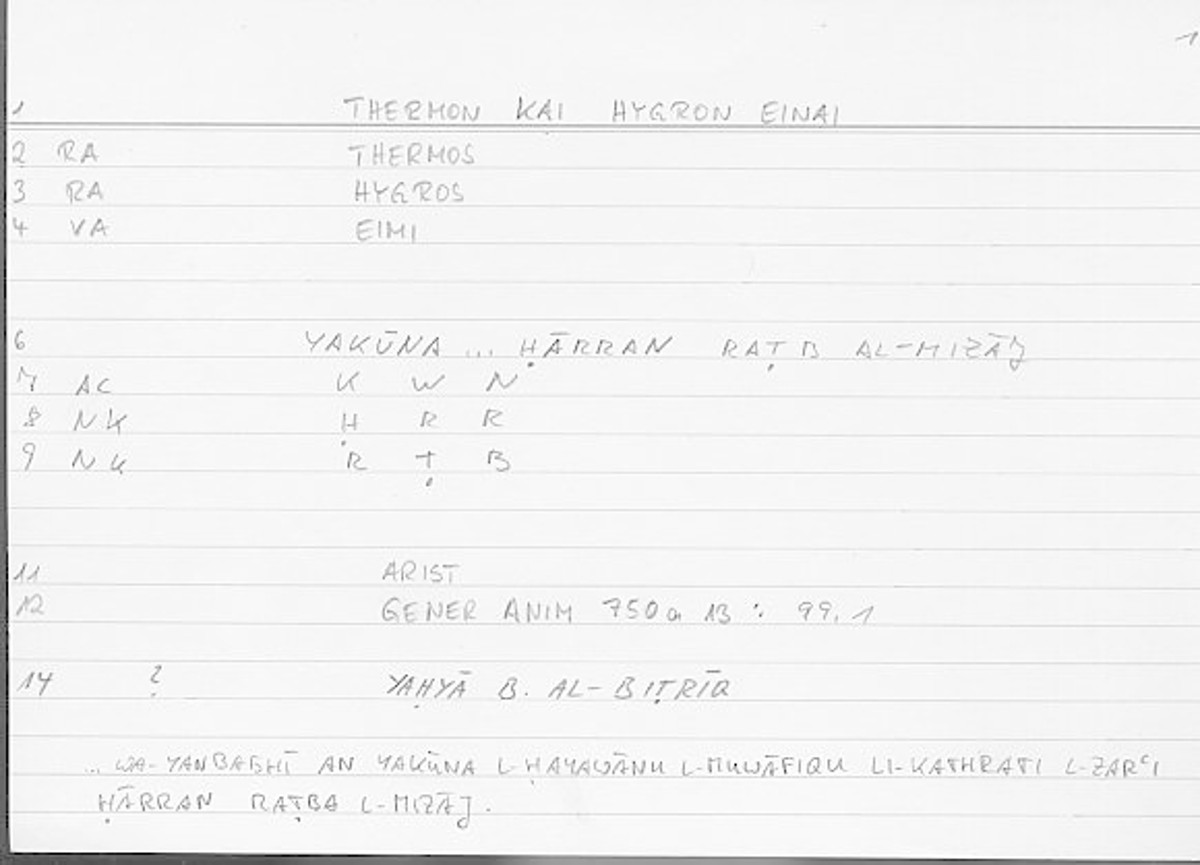 1
1 THERMON KAI HYGRON EINAI
2 RA THERMOS
3 RA HYGROS
4 VA EIMI
6 YAKŪNA ... ḤĀRRAN RAṬB AL-MIZĀJ
7 AC K W N
8 NK Ḥ R R
9 NK R Ṭ B
11 ARIST
12 GENER ANIM 750a 13 : 99,1
14 ? YAḤYĀ B. AL-BIṬRĪQ
... WA-YANBAGHĪ AN YAKŪNA L-ḤAYAWĀNU L-MUWĀFIQU LI-KATHRATI L-ZARʿI
ḤĀRRAN RAṬBA L-MIZĀJ.